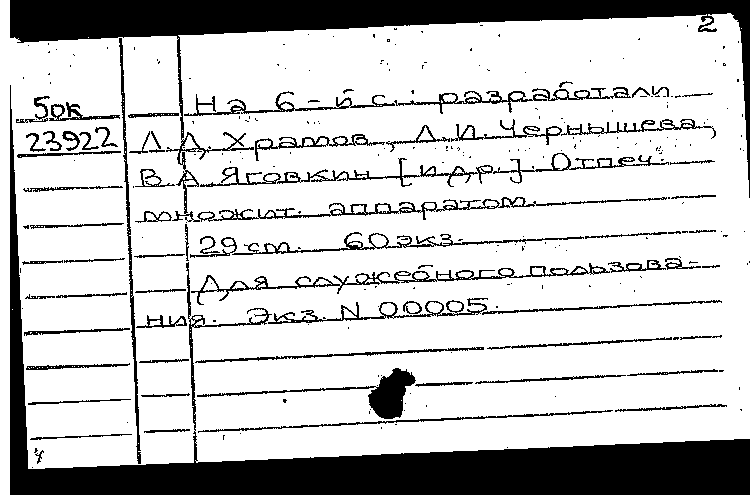 2
5ок На 6-й с.: разработали
23922 Л.Д. Храмов, Л.И. Чернышева,
В.А. Яговкин [и др.]. Отпеч.
множит. аппаратом.
29 см. 60 экз.
Для служебного пользова-
ния. Экз. N 00005.